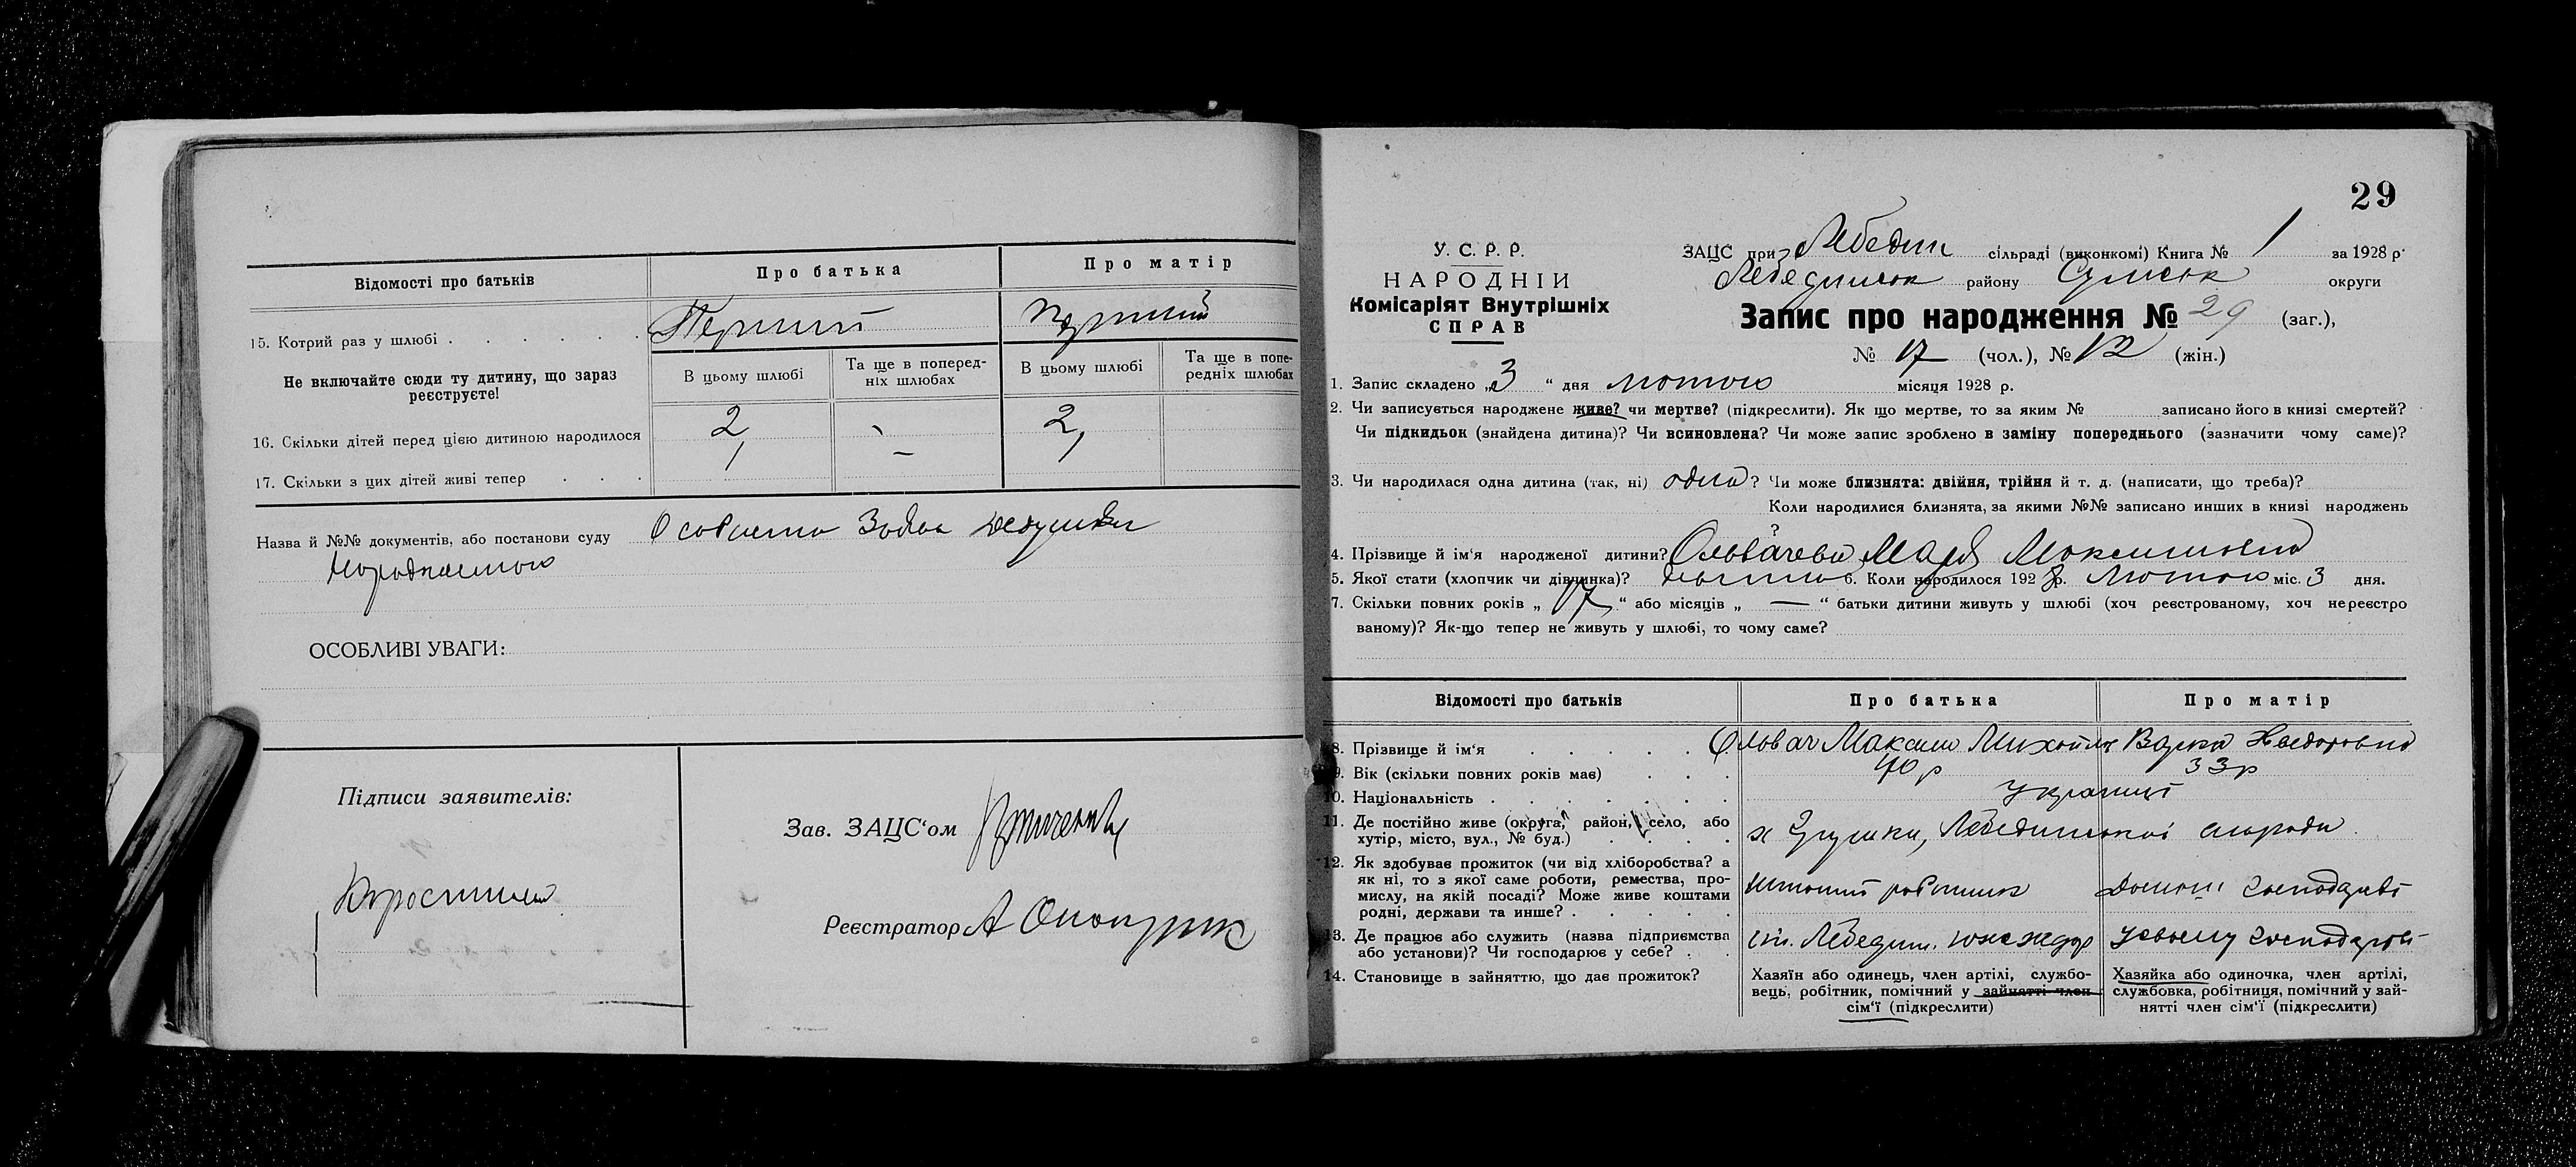 Відомості про батьків
Про батька
Про матір
15. Котрий раз у шлюбі
Перший
Перший
Не включайте сюди ту дитину, що зараз реєструєте!
В цьому шлюбі
Та ще в поперед-
ніх шлюбах
В цьому шлюбі
Та ще в попе-
редніх шлюбах
16. Скільки дітей перед цією дитиною народилося
2
2
17. Скільки з цих дітей живі тепер
1 — 1
Назва й №№ документів, або постанови суду
ОСОБЛИВІ УВАГИ:
Підписи заявителів:
Зав. ЗАЦС'ом
Реєстратор
29
У. С. Р. Р.
НАРОДНІЙ
Комісаріят Внутрішніх
СПРАВ
ЗАЦС при Лебедин сільраді (виконкомі) Книга № 1 за 1928 р.
Лебединськ району Сумськ округи
Запис про народження № 29 (заг.),
№ 17 (чол.), № 12 (жін.)
1. Запис складено „3“ дня лютого місяця 1928 р.
2. Чи записується народжене живе? чи мертве? (підкреслити). Як що мертве, то за яким № записано його в книзі смертей?
Чи підкидьок (знайдена дитина)? Чи всиновлена? Чи може запис зроблено в заміну попереднього (зазначити чому саме)?
3. Чи народилася одна дитина (так, ні) одна? Чи може близнята: двійня, трійня й т. д. (написати, що треба)?
Коли народилися близнята, за якими №№ записано инших в книзі народжень
?
4. Прізвище й ім'я народженої дитини? Марія Максимовна
5. Якої стати (хлопчик чи дівчинка)? 6. Коли народилося 1928 р. Лютого міс. 3 дня.
7. Скільки повних років „17“ або місяців „—“ батьки дитини живуть у шлюбі (хоч реєстрованому, хоч нереєстро
ваному)? Як-що тепер не живуть у шлюбі, то чому саме?
Відомості про батьків
Про батька
Про матір
8. Прізвище й ім'я
Ольвач Максим Михайл
Варка Хведоровна
9. Вік (скільки повних років має)
40 р
33 р
10. Національність
Українці
11. Де постійно живе (округа, район, село, або
хутір, місто, вул., № буд.)
12. Як здобуває прожиток (чи від хліборобства? а
як ні, то з якої саме роботи, ремества, про-
мислу, на якій посаді? Може живе коштами
родні, держави та инше?
робітник
Домаш господарств
13. Де працює або служить (назва підприємства
або установи)? Чи господарює у себе?
ст. Лебедин.
У своєму господарств
14. Становище в зайняттю, що дає прожиток?
Хазяїн або одинець, член артілі, службо-
вець, робітник, помічний у зайнятті член
сім'ї (підкреслити)
Хазяйка або одиночка, член артілі,
службовка, робітниця, помічний у зай-
нятті член сім'ї (підкреслити)